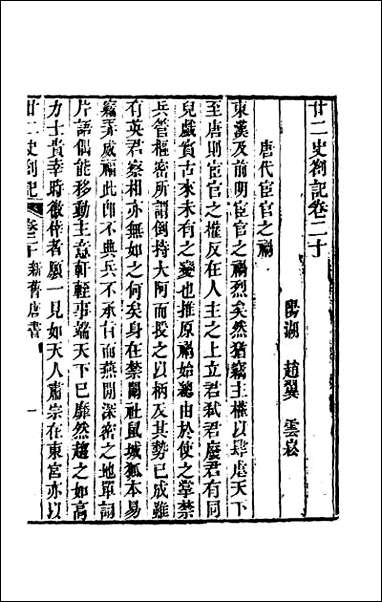 廿二史劄記卷二十
陽湖 趙翼 雲崧
唐代宦官之禍
東漢及前明宦官之禍烈矣然猶竊主權以肆虐天下
至唐則宦官之權反在人主之上立君弒君廢君有同
兒戲實古來未有之變也推原禍始總由於使之掌禁
兵管樞密所謂倒持太阿而授之以柄及其勢已成雖
有英君察相亦無如之何矣身在禁闥社鼠城狐本易
竊弄威福此即不典兵不承旨而燕閒深密之地單詞
片語偶能移動主意軒輊事端天下已靡然趨之如高
力士貴幸時徼倖者願一見如天人肅宗在東宮亦以
廿二史劄記 卷二十 新舊唐書 一